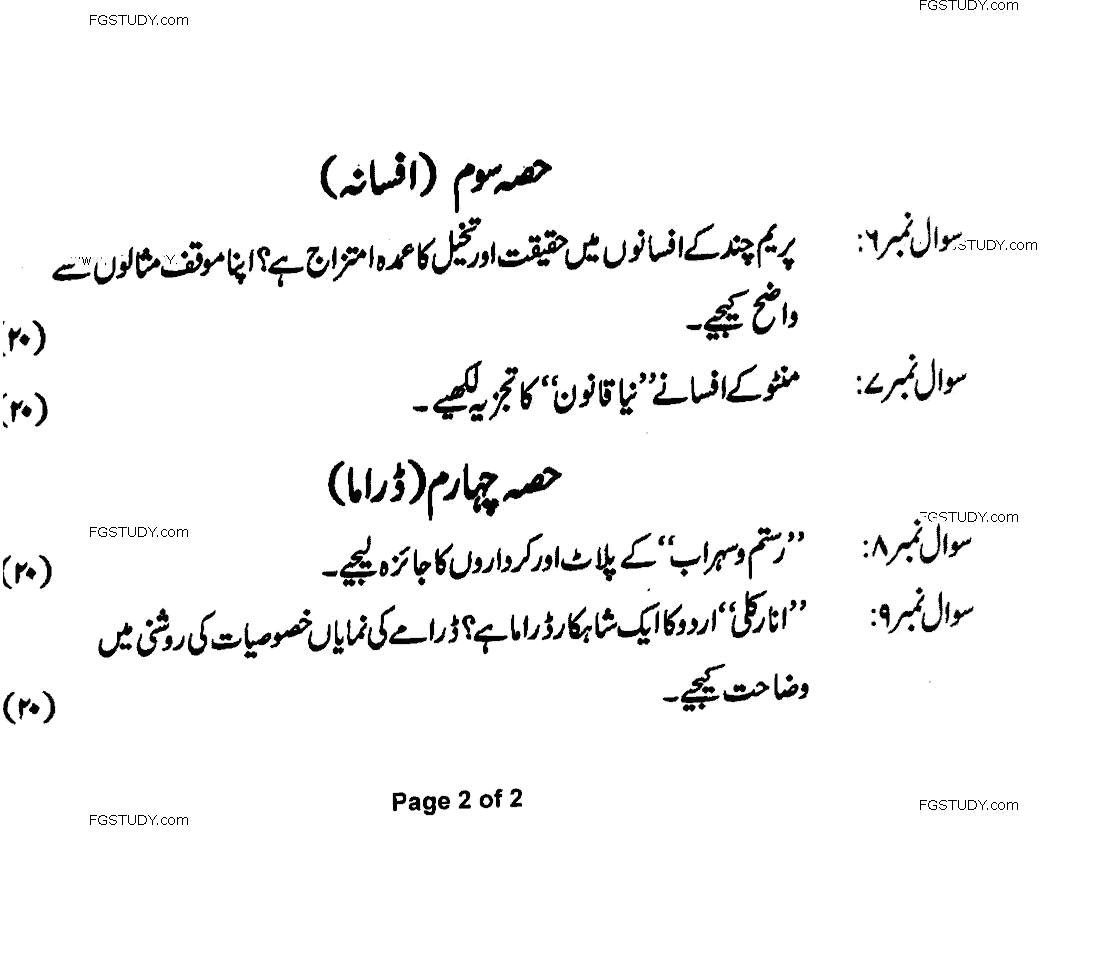 FGSTUDY.com
FGSTUDY.com
حصہ سوم (افسانہ)
سوال نمبر ۶: پریم چند کے افسانوں میں حقیقت اور تخیل کا عمدہ امتزاج ہے؟ اپنا موقف مثالوں سے
FGSTUDY.com
واضح کیجیے۔ (۲۰)
سوال نمبر ۷: منٹو کے افسانے ”نیا قانون“ کا تجزیہ لکھیے۔ (۲۰)
حصہ چہارم (ڈراما)
FGSTUDY.com
FGSTUDY.com
سوال نمبر ۸: ”رستم و سہراب“ کے پلاٹ اور کرداروں کا جائزہ لیجیے۔ (۲۰)
سوال نمبر ۹: ”انار کلی“ اردو کا ایک شاہکار ڈراما ہے؟ ڈرامے کی نمایاں خصوصیات کی روشنی میں
وضاحت کیجیے۔ (۲۰)
Page 2 of 2
FGSTUDY.com
FGSTUDY.com